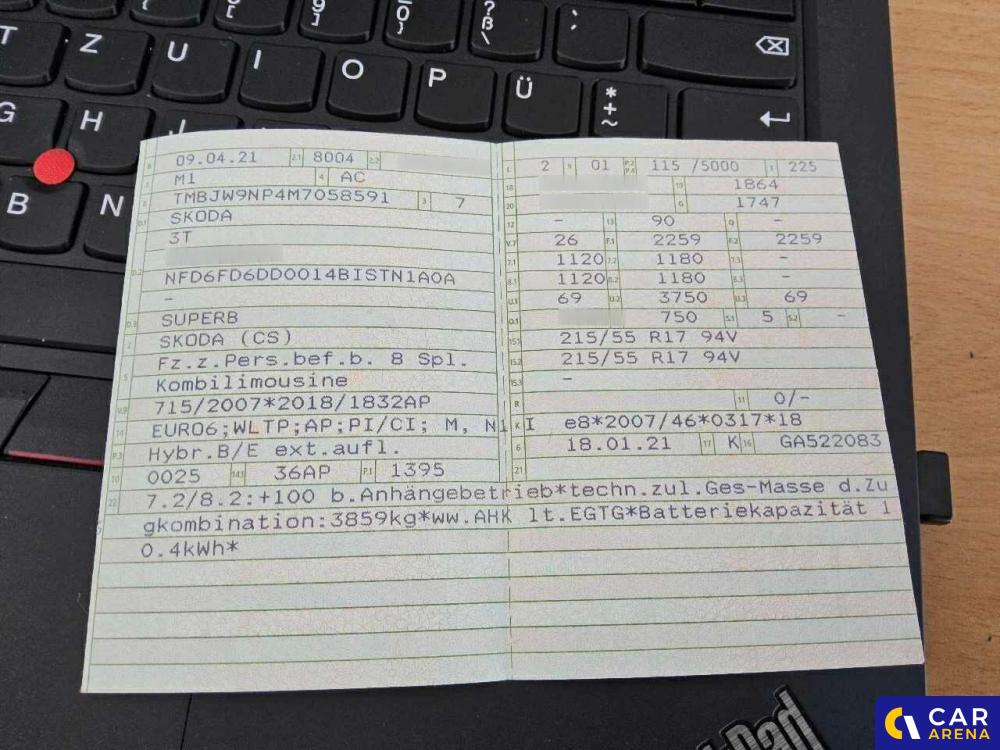 T Z U I O P Ü * + ~
G H J
B N
? ß \
09.04.21 2.1 8004 2.2
M1 4 AC
TMBJW9NP4M7058591 3 7
D.1 SKODA
3T
D.2 NFD6FD6DD0014BISTN1A0A
–
D.3 SUPERB
2 SKODA (CS)
5 Fz.z.Pers.bef.b. 8 Spl.
Kombilimousine
V.9 715/2007*2018/1832AP
14 EURO6;WLTP;AP;PI/CI; M, N1 I
P.3 Hybr.B/E ext.aufl.
10 0025 14.1 36AP P.1 1395
L 2 9 01 P.2 P.4 115 /5000 T 225
18 19 1864
20 G 1747
12 – 13 90 Q –
V.7 26 F.1 2259 F.2 2259
7.1 1120 7.2 1180 7.3 –
8.1 1120 8.2 1180 8.3 –
U.1 69 U.2 3750 U.3 69
O.1 750 S.1 5 S.2 –
15.1 215/55 R17 94V
15.2 215/55 R17 94V
15.3 –
R 11 0/–
K e8*2007/46*0317*18
6 18.01.21 17 K 16 GA522083
21
22 7.2/8.2:+100 b.Anhängebetrieb*techn.zul.Ges-Masse d.Zu
gkombination:3859kg*ww.AHK lt.EGTG*Batteriekapazität 1
0.4kWh*
Pad
CAR
ARENA